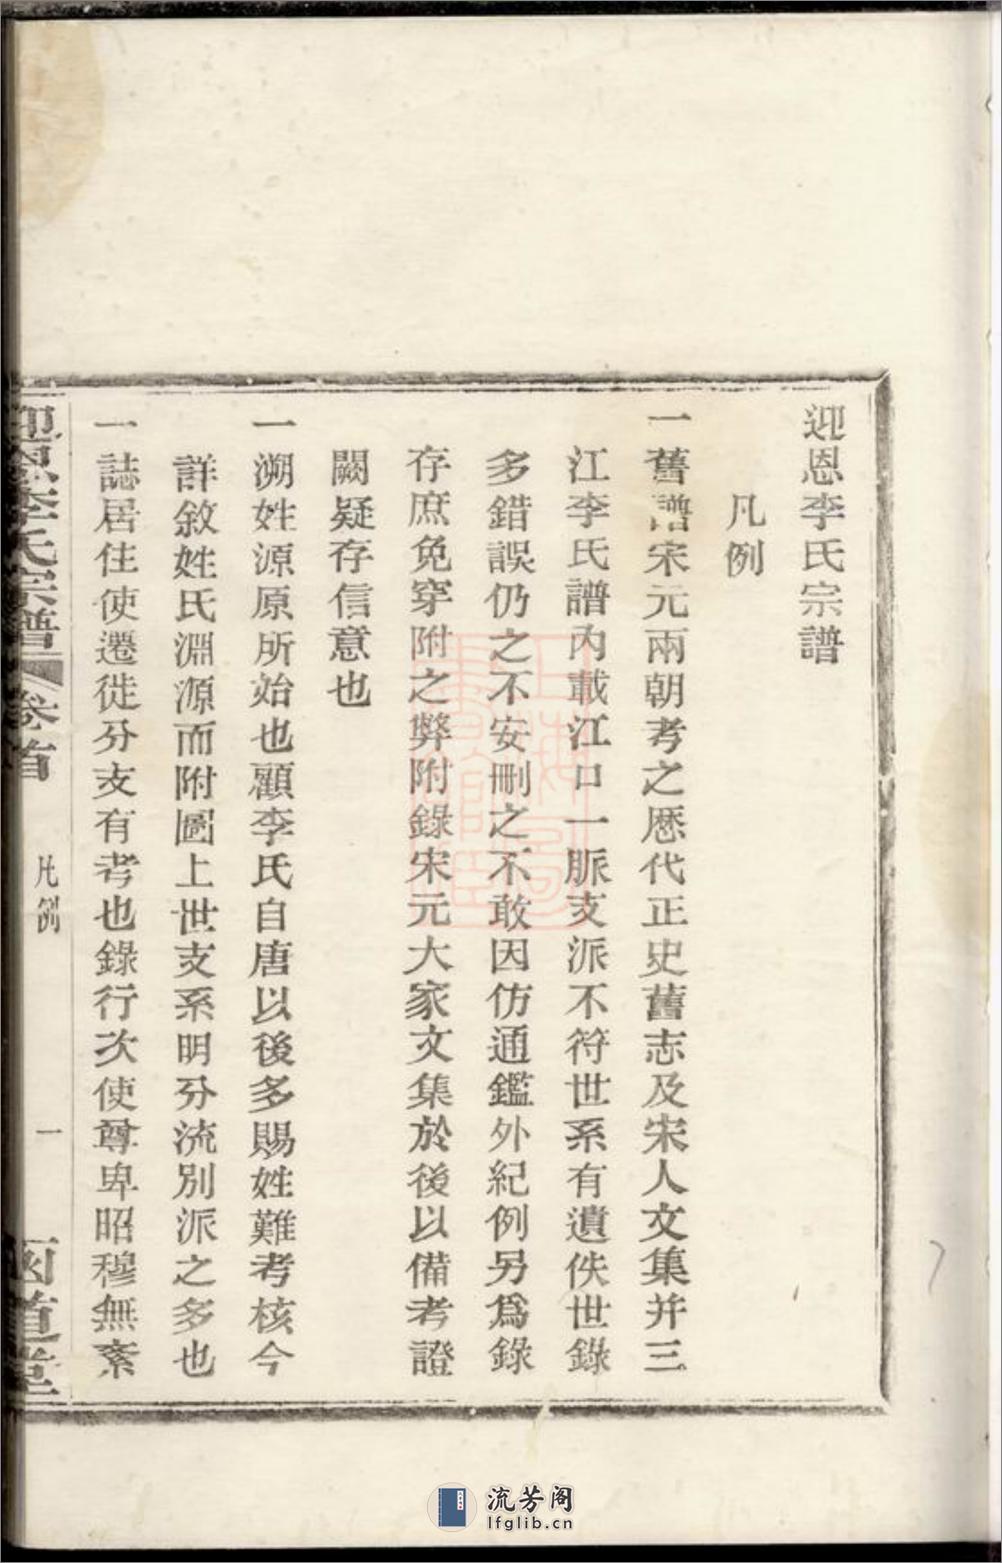 迎恩李氏宗譜
凡例
一舊譜宋元兩朝考之厯代正史舊志及宋人文集并三
江李氏譜內載江口一脈支派不符世系有遺佚世錄
多錯誤仍之不安刪之不敢因仿通鑑外紀例另爲錄
存庶免穿附之弊附錄宋元大家文集於後以備考證
闕疑存信意也
一溯姓源原所始也顧李氏自唐以後多賜姓難考核今
詳敘姓氏淵源而附圖上世支系明分流別派之多也
一誌居住使遷徙分支有考也錄行次使尊卑昭穆無紊
迎恩李氏宗譜 卷首 凡例 一
道堂
流芳阁
lfglib.cn